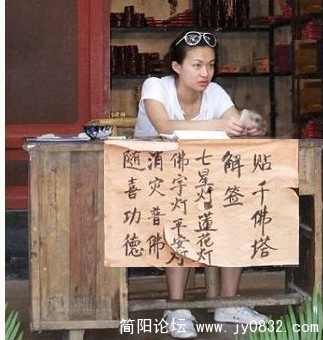 贴千佛塔
解签
七星灯莲花灯
佛字灯平安灯
消灾普佛
随喜功德
简阳论坛：www.jy0832.com